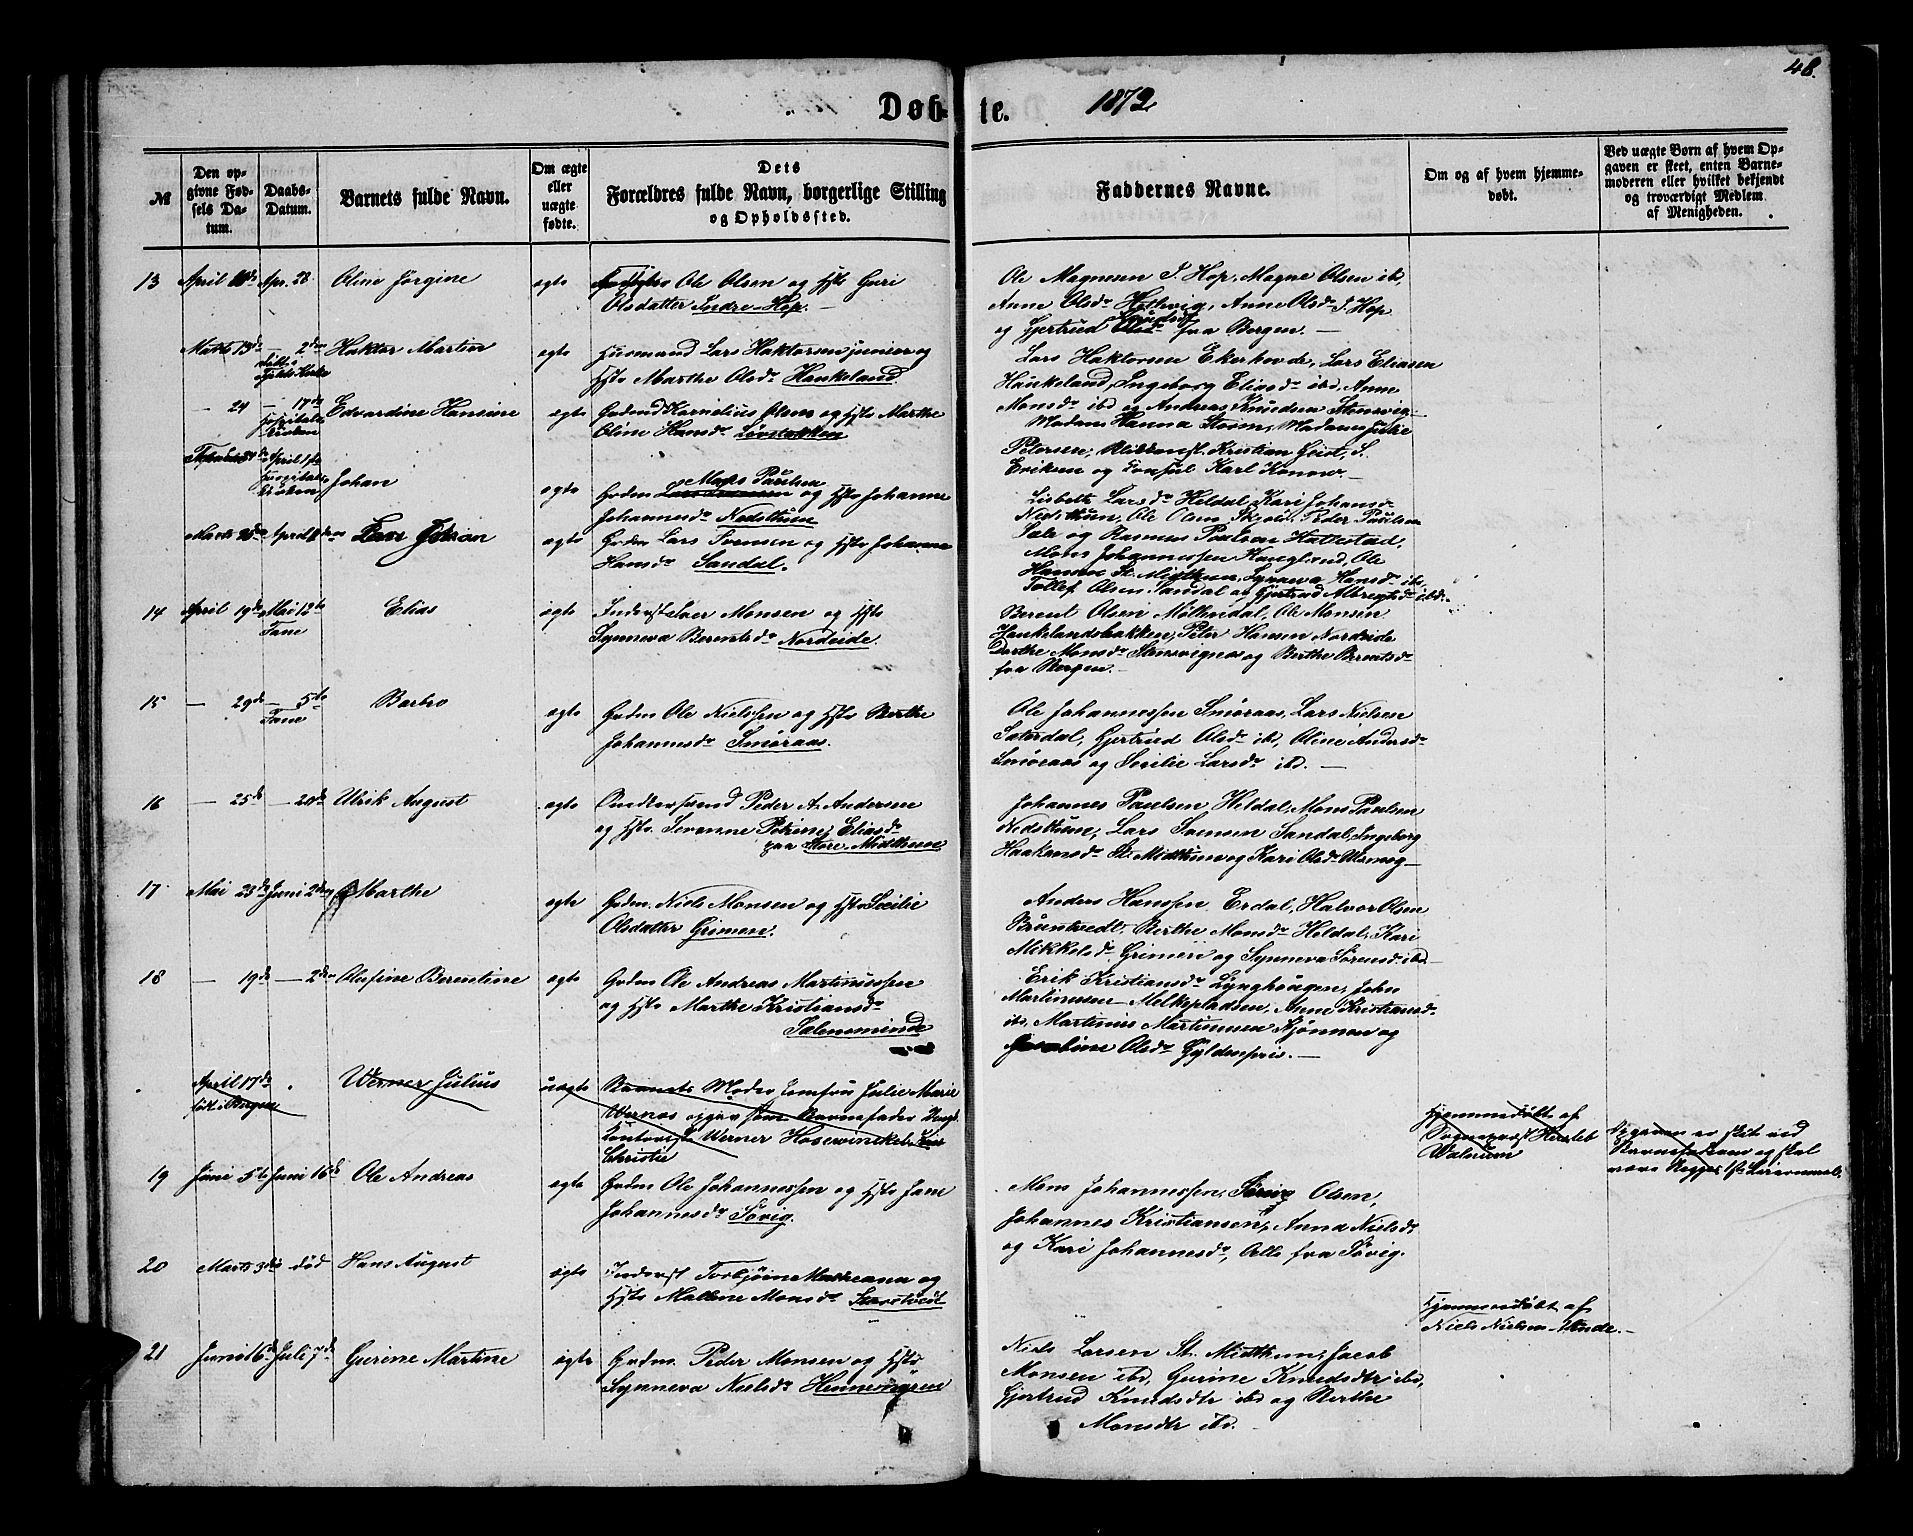 48.
Døb-te. 1872
№
Den op-
givne Fød-
sels Da-
tum.
Daabs-
Datum.
Barnets fulde Navn.
Om ægte
eller
uægte
fødte.
Dets
Forældres fulde Navn, borgerlige Stilling
og Opholdssted.
Faddernes Navne.
Om og af hvem hjemme-
døbt.
Ved uægte Børn af hvem Op-
gaven er skeet, enten Barne-
moderen eller hvilket bekjendt
og troværdigt Medlem
af Menigheden.
13 April Apr. 28 Oline Jørgine egte Ole Olsen og Hst Guri
Olsdatter Indre-Hop. —
Ole Magnesen I. Hop, Magne Olsen ibd,
Anne Olsdr Helhvig, Anne Olsdr I. Hop
og Gjertrud Knudsdr fra Bergen. —
Marts 13de — 2den Haktor Martin egte Husmand Lars Haktorsen junior og
Hst Marthe Olsdr Haukeland
Lars Haktorsen Ekerhovde, Lars Eliasen
Haukeland, Ingeborg Eliasdr ibd, Anne
Monsdr ibd og Andreas Knudsen Stensvig
— 24 — 17de Hospitals Kirken Edvardine Hansine egte Grdmd Kornelius Olsen og Hst Marthe
Oline Hansdr Løvstakken
Madam Hanna Storm, Madame Julie
Petersen, Kristian Geist, S.
Eriksen og Consul Karl Konow. —
April 1ste Hospitals Kirken Johan egte Grdm Mons Paulsen og Hst Johanne
Johannesdr Nedsthun
Lisbeth Larsdr Heldal, Kari Johansdr
Nedsthun, Ole Olsen Skjold, Peder Paulsen
Sæle og Rasmus Paulsen Hattestad.
Marts April Lars Johan egte Grdm Lars Svensen og Hst Johanna
Hansdr Sandal.
Mons Johannessen Haugland, Ole
Hansen St. Midthun, Synneva Hansdr ibd,
Tollef Olsen Sandal og Gjertrud Albregtsdr ibd.
14 April 19de Mai 12te Fane Elias egte Inderst Iver Monsen og Hst
Synneva Berentsdr Nordeide.
Berent Olsen Møllendal, Ole Monsen
Haukelandsbakken, Peter Hansen Nordeide
Dorthe Monsdr Stensvignes og Berthe Berentsdr
fra Bergen. —
15 — 29de — 5te Fane Barbro egte Grdm Ole Nielssen og Hst Berthe
Johannesdr Smøraas.
Ole Johannessen Smøraas, Lars Nielsen
Sæterdal, Gjertrud Olsdr ibd, Oline Andersdr
Smøraas og Secilie Larsdr ibd. —
16 — 25de — 20de Ulrik August egte Peder A. Andersen
og Hst. Sevanne Petrine Eliasdr
paa Store Midthun
Johannes Paulsen Heldal, Mons Paulsen
Nedsthun, Lars Svensen Sandal, Ingeborg
Haakensdr St. Midthun og Kari Olsdr —
17 Mai 23de Juni 2den Marthe egte Grdm. Niels Monsen og Hst Secilie
Olsdatter Grimen.
Anders Hanssen Erdal, Halvor Olsen
Brüntvedt, Berthe Monsdr Heldal, Kari
Mikkelsdr Grimen og Synneva Sørensdr ibd. —
18 — 19de — 2den Olufine Berentine egte Grdm Ole Andreas Martinussen
og Hst Marthe Kristiansdr
Sælensminde
Erik Kristiansdr Lynghaugen, John
Martinussen Melkepladsen, Anne Kristiansdr
ibd, Martinus Martinussen Kjønnen og
Olsdr Gyldenpris. —
April 17de født i Bergen Werner Julius uegte Barnets Moder Jomfru Julie Marie
Wernøs opgav som Barnefader
Kontorist Werner Hosewinckel
Christie
Hjemmedøbt af
Sognepræst Hersleb
Walnum
Opgaven er sket ved
Barnefaderen og skal
være Begges 1ste Leiermaal.
19 Juni 5te Juni 16de Ole Andreas egte Grdm Ole Johannessen og Hst Jane
Johannesdr Søvig.
Mons Johannessen, Søren Olsen,
Johannes Kristiansen, Anna Nielsdr
og Kari Johannesdr, Alle fra Søvig.
20 Marts 3die død Hans August egte Inderst Torbjørn Matheana og
Hst Malene Monsdr Storetvedt
Hjemmedøbt af
Niels Nielsen Unde. —
21 Juni 16de Juli 7de Gurine Martine egte Grdm. Peder Monsen og Hst
Synneva Nielsdr Hennevigsne
Niels Larsen St. Midthun, Jacob
Monsen ibd, Gurine Knudsdtr ibd,
Gjertrud Knudsdtr ibd og Berthe
Monsdtr ibd.